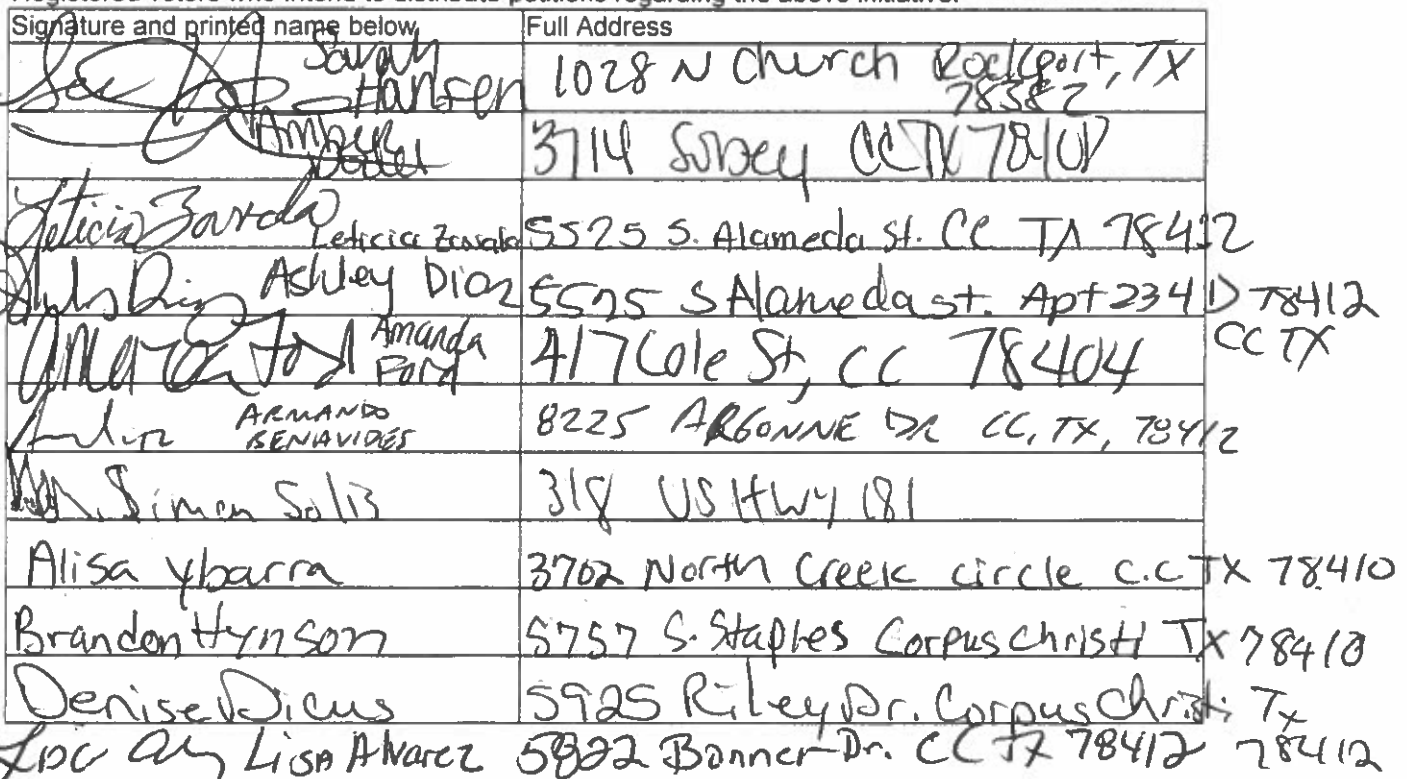 Signature and printed name below Full Address
Sarah Hansen 1028 N Church Rockport, TX 78382
Amber 3714 CC TX
Leticia Zavala 5525 S. Alameda St. CC TX 78412
Ashley Diaz 5525 S Alameda st. Apt 234 D 78412 CC TX
Amanda Ford 417 Cole St, CC 78404
ARMANDO BENAVIDES 8225 ARGONNE DR CC, TX, 78412
Simon Solis 318 US Hwy 181
Alisa ybarra 3702 North Creek circle c.c TX 78410
Brandon Hynson 5757 S. Staples Corpus christi TX
Denise Dicus 5925 Riley Dr. Corpus Christi, Tx 78412
Lisa Alvarez 5822 Bonner Dr. CC TX 78412